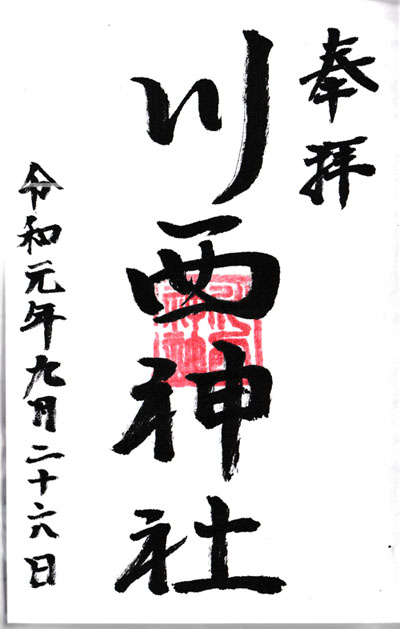 奉拝
川西神社
令和元年九月二十六日